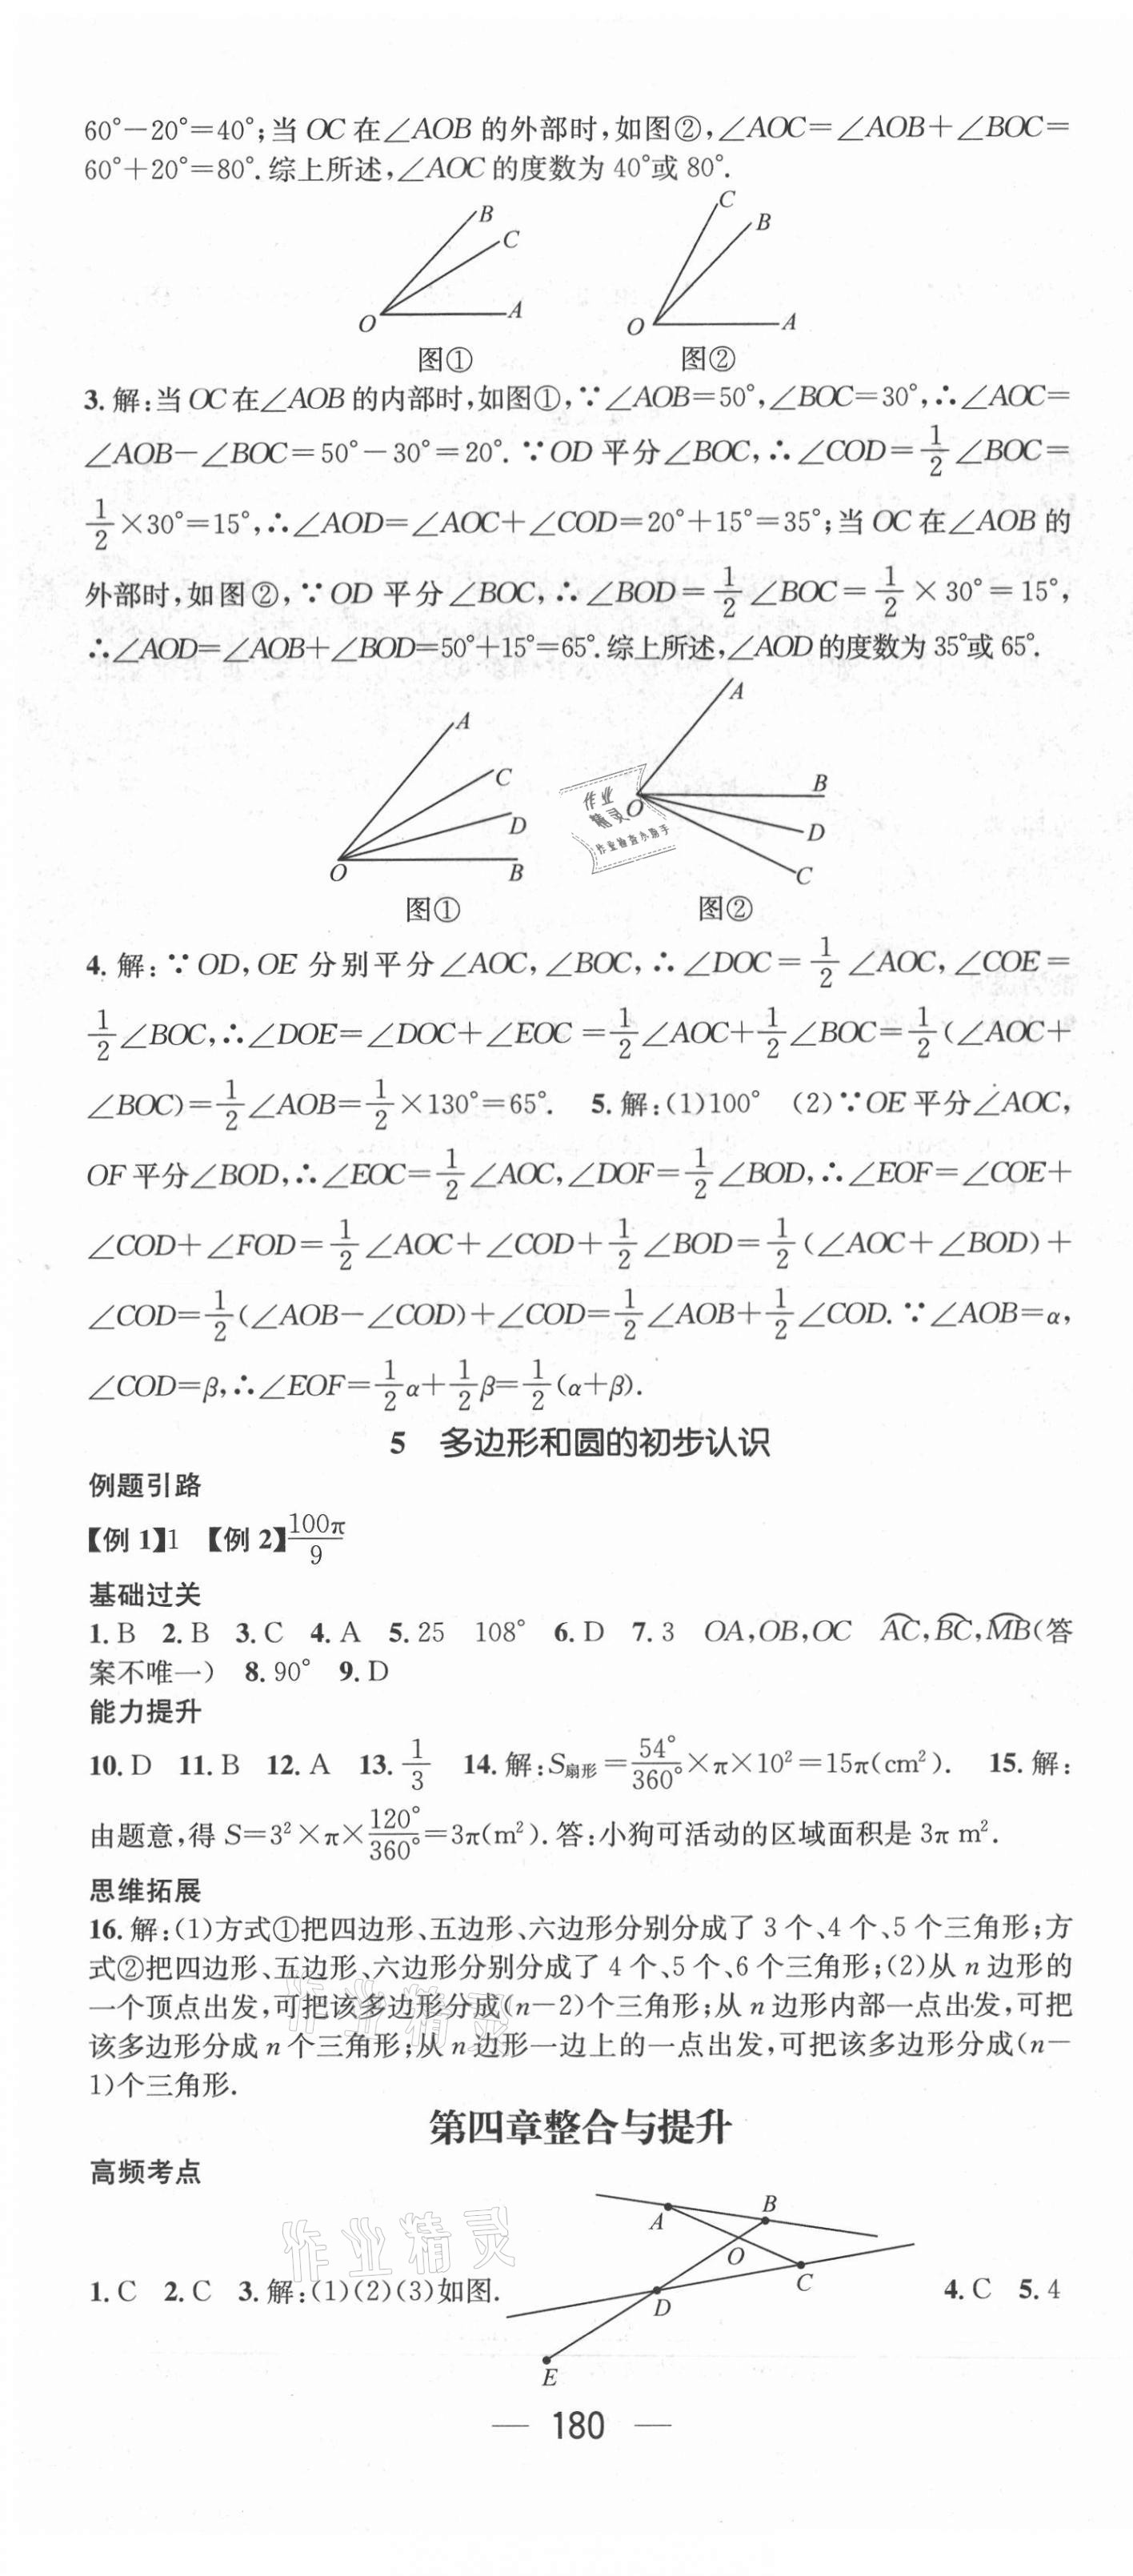 60°－20°＝40°;当 OC 在∠AOB 的外部时,如图②,∠AOC＝∠AOB＋∠BOC＝
60°＋20°＝80°.综上所述,∠AOC 的度数为 40°或 80°.
B
C
O
A
图①
C
B
O
A
图②
3.解:当 OC 在∠AOB 的内部时,如图①,∵∠AOB＝50°,∠BOC＝30°,∴∠AOC＝
∠AOB－∠BOC＝50°－30°＝20°.∵OD 平分∠BOC,∴∠COD＝1/2∠BOC＝
1/2×30°＝15°,∴∠AOD＝∠AOC＋∠COD＝20°＋15°＝35°;当 OC 在∠AOB 的
外部时,如图②,∵OD 平分∠BOC,∴∠BOD＝1/2∠BOC＝1/2×30°＝15°,
∴∠AOD＝∠AOB＋∠BOD＝50°＋15°＝65°.综上所述,∠AOD 的度数为 35°或 65°.
A
C
D
O
B
图①
A
B
O
D
C
图②
作业
精灵
作业检查小助手
4.解:∵OD,OE 分别平分∠AOC,∠BOC,∴∠DOC＝1/2∠AOC,∠COE＝
1/2∠BOC,∴∠DOE＝∠DOC＋∠EOC＝1/2∠AOC＋1/2∠BOC＝1/2(∠AOC＋
∠BOC)＝1/2∠AOB＝1/2×130°＝65°. 5.解:(1)100° (2)∵OE 平分∠AOC,
OF 平分∠BOD,∴∠EOC＝1/2∠AOC,∠DOF＝1/2∠BOD,∴∠EOF＝∠COE＋
∠COD＋∠FOD＝1/2∠AOC＋∠COD＋1/2∠BOD＝1/2(∠AOC＋∠BOD)＋
∠COD＝1/2(∠AOB－∠COD)＋∠COD＝1/2∠AOB＋1/2∠COD.∵∠AOB＝α,
∠COD＝β,∴∠EOF＝1/2α＋1/2β＝1/2(α＋β).
5 多边形和圆的初步认识
例题引路
【例 1】1 【例 2】100π/9
基础过关
1.B 2.B 3.C 4.A 5.25 108° 6.D 7.3 OA,OB,OC A͡C,B͡C,M͡B(答
案不唯一) 8.90° 9.D
能力提升
10.D 11.B 12.A 13.1/3 14.解:S扇形＝54°/360°×π×10²＝15π(cm²). 15.解:
由题意,得 S＝3²×π×120°/360°＝3π(m²).答:小狗可活动的区域面积是 3π m².
思维拓展
16.解:(1)方式①把四边形、五边形、六边形分别分成了 3 个、4 个、5 个三角形;方
式②把四边形、五边形、六边形分别分成了 4 个、5 个、6 个三角形;(2)从 n 边形的
一个顶点出发,可把该多边形分成(n－2)个三角形;从 n 边形内部一点出发,可把
该多边形分成 n 个三角形;从 n 边形一边上的一点出发,可把该多边形分成(n－
1)个三角形.
作业精灵
第四章整合与提升
高频考点
作业精灵
1.C 2.C 3.解:(1)(2)(3)如图. 4.C 5.4
A
B
O
C
D
E
— 180 —